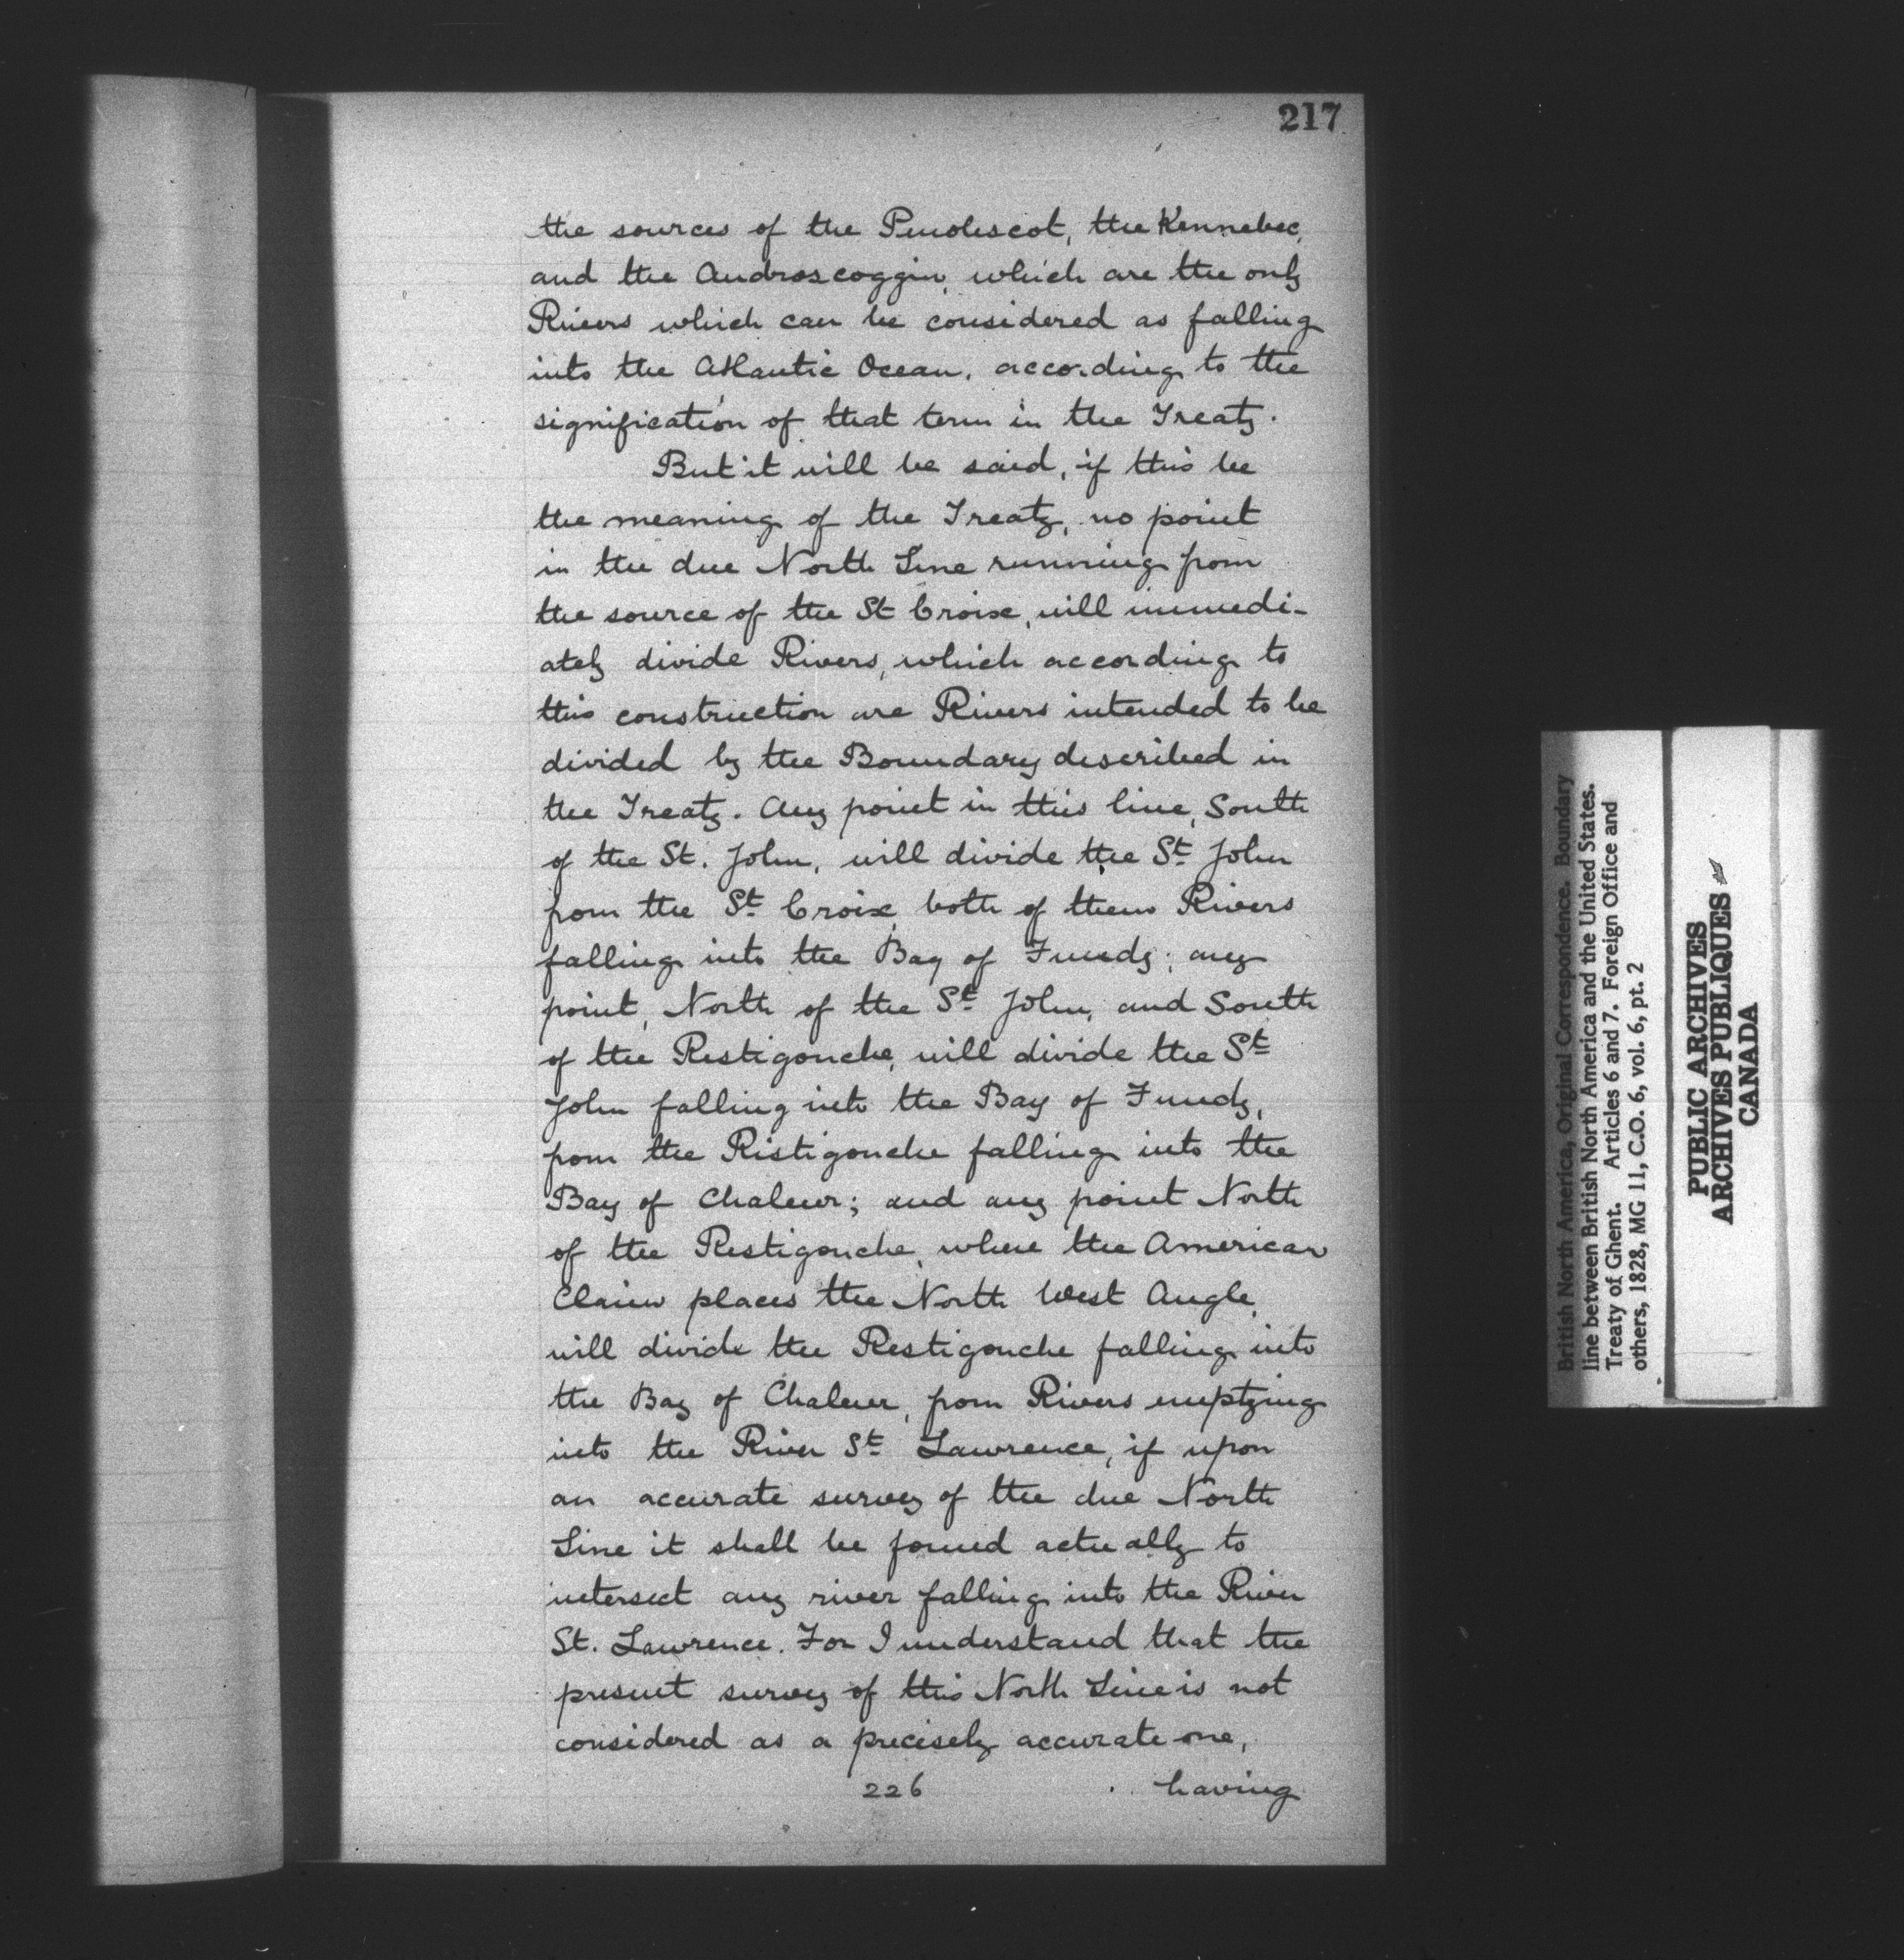 217
the sources of the Penobscot, the Kennebec,
and the Androscoggin, which are the only
Rivers which can be considered as falling
into the Atlantic Ocean, according to the
signification of that term in the Treaty.
But it will be said, if this be
the meaning of the Treaty, no point
in the due North Line running from
the source of the St Croix, will immedi-
ately divide Rivers, which according to
this construction are Rivers intended to be
divided by the Boundary described in
the Treaty. Any point in this line, South
of the St. John, will divide the St John
from the St Croix, both of them Rivers
falling into the Bay of Fundy; any
point, North of the St John, and South
of the Restigouche, will divide the St
John falling into the Bay of Fundy,
from the Ristigouche falling into the
Bay of Chaleur; and any point North
of the Restigouche, where the American
Claim places the North West Angle,
will divide the Restigouche falling into
the Bay of Chaleur, from Rivers emptying
into the River St Lawrence, if upon
an accurate survey of the due North
Line it shall be found actually to
intersect any river falling into the River
St. Lawrence. For I understand that the
present survey of this North Line is not
considered as a precisely accurate one,
226 having
British North America, Original Correspondence. Boundary
line between British North America and the United States.
Treaty of Ghent. Articles 6 and 7. Foreign Office and
others, 1828, MG 11, C.O. 6, vol. 6, pt. 2
PUBLIC ARCHIVES
ARCHIVES PUBLIQUES
CANADA